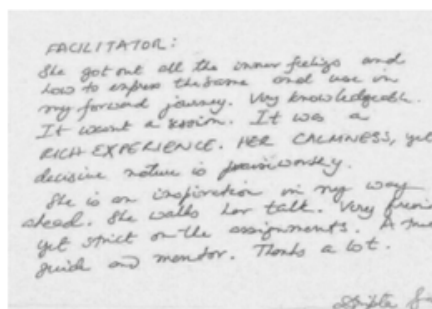 FACILITATOR:
She got out all the inner feelings and
how to express the same and use in
my forward journey. Very knowledgeable.
It wasnt a session. It was a
RICH EXPERIENCE. HER CALMNESS, yet
decisive nature is praiseworthy.
She is an inspiration in my way
ahead. She walks her talk. Very
yet strict on the assignments. A true
guide and mentor. Thanks a lot.